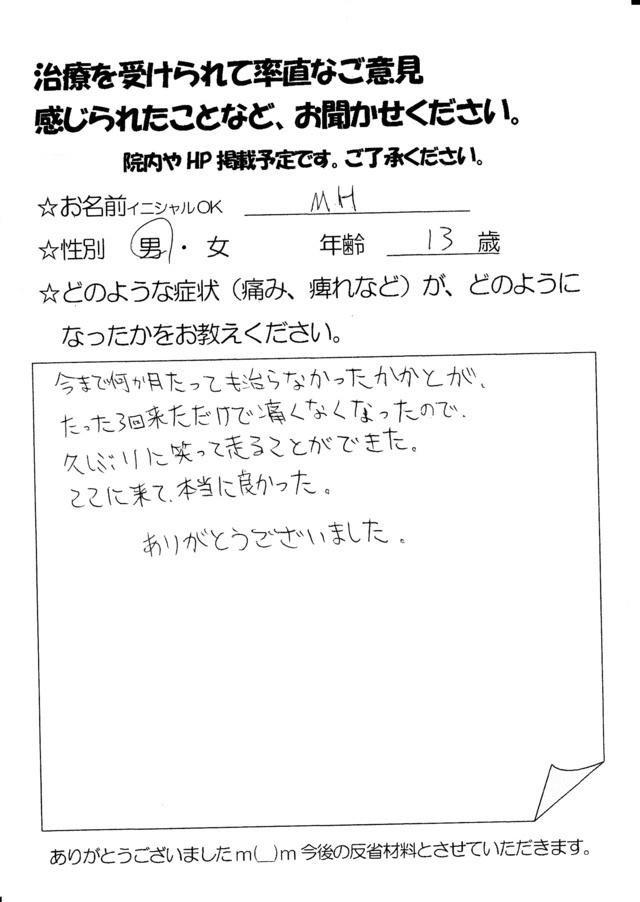 治療を受けられて率直なご意見
感じられたことなど、お聞かせください。
院内や HP 掲載予定です。ご了承ください。
☆お名前イニシャルOK M.H
☆性別 男・女 年齢 13 歳
☆どのような症状(痛み、痺れなど)が、どのように
なったかをお教えください。
今まで何か月たっても治らなかったかかとが、
たった3回来ただけで痛くなくなったので、
久しぶりに笑って走ることができた。
ここに来て、本当に良かった。
ありがとうございました。
ありがとうございましたm(__)m今後の反省材料とさせていただきます。